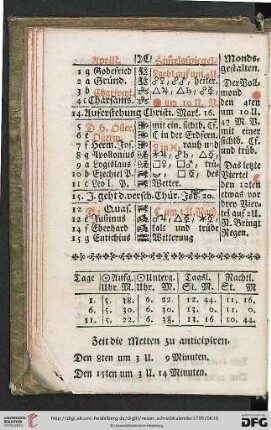 Aprill.
Himelsspiegel.
Monds-
gestalten.
1 g Godefried
Tacht auf um 4 U.
2 a Gründ.
heiter.
Der Voll-
3 b Charfreyt.
mond
4 c Charsamst.
um 10 U. N.
den 4ten
14. Auferstehung Christi. Mark. 16.
um 10 U.
5 D H. Oster.
mit ein. sichtb. Cf.
N. M. V.
6
in der Erdfern.
mit einer
7 f Herm. Jos.
rauh und
sichtb. Cf.
8 g Apollonius
und trüb.
9 a Logislaus
trüb
Das letzte
10 b Ezechiel P.
des
Viertel
11 c Leo I. P.
Wetter.
den 12ten
15. J. geht d. versch. Thür. Joh. 20.
etwas vor
12 Quas.
um 1 U. Nach.
drey Vier-
13 e Justinus
tel auf 2 U.
14 f Eberhard
kalt und trübe
N. Bringt
15 g Eutichius
Witterung
Regen.
Tage | Aufg. | Unterg. | Tagsl. | Nachtl.
Uhr M. | Uhr M. | St. M. | St. M.
1. | 5. 38. | 6. 22. | 12. 44. | 11. 16.
6. | 5. 30. | 6. 30. | 13. 0. | 11. 0.
11. | 5. 22. | 6. 38. | 13. 16. | 10. 44.
Zeit die Metten zu anticipiren.
Den 8ten um 3 U. 9 Minuten.
Den 15ten um 3 U. 14 Minuten.
http://digi.ub.uni-heidelberg.de/diglit/neuer_schreibkalender1795/0019
© Universitätsbibliothek Heidelberg
UNIVERSITÄTS-
BIBLIOTHEK
HEIDELBERG
Gefördert durch die
DFG